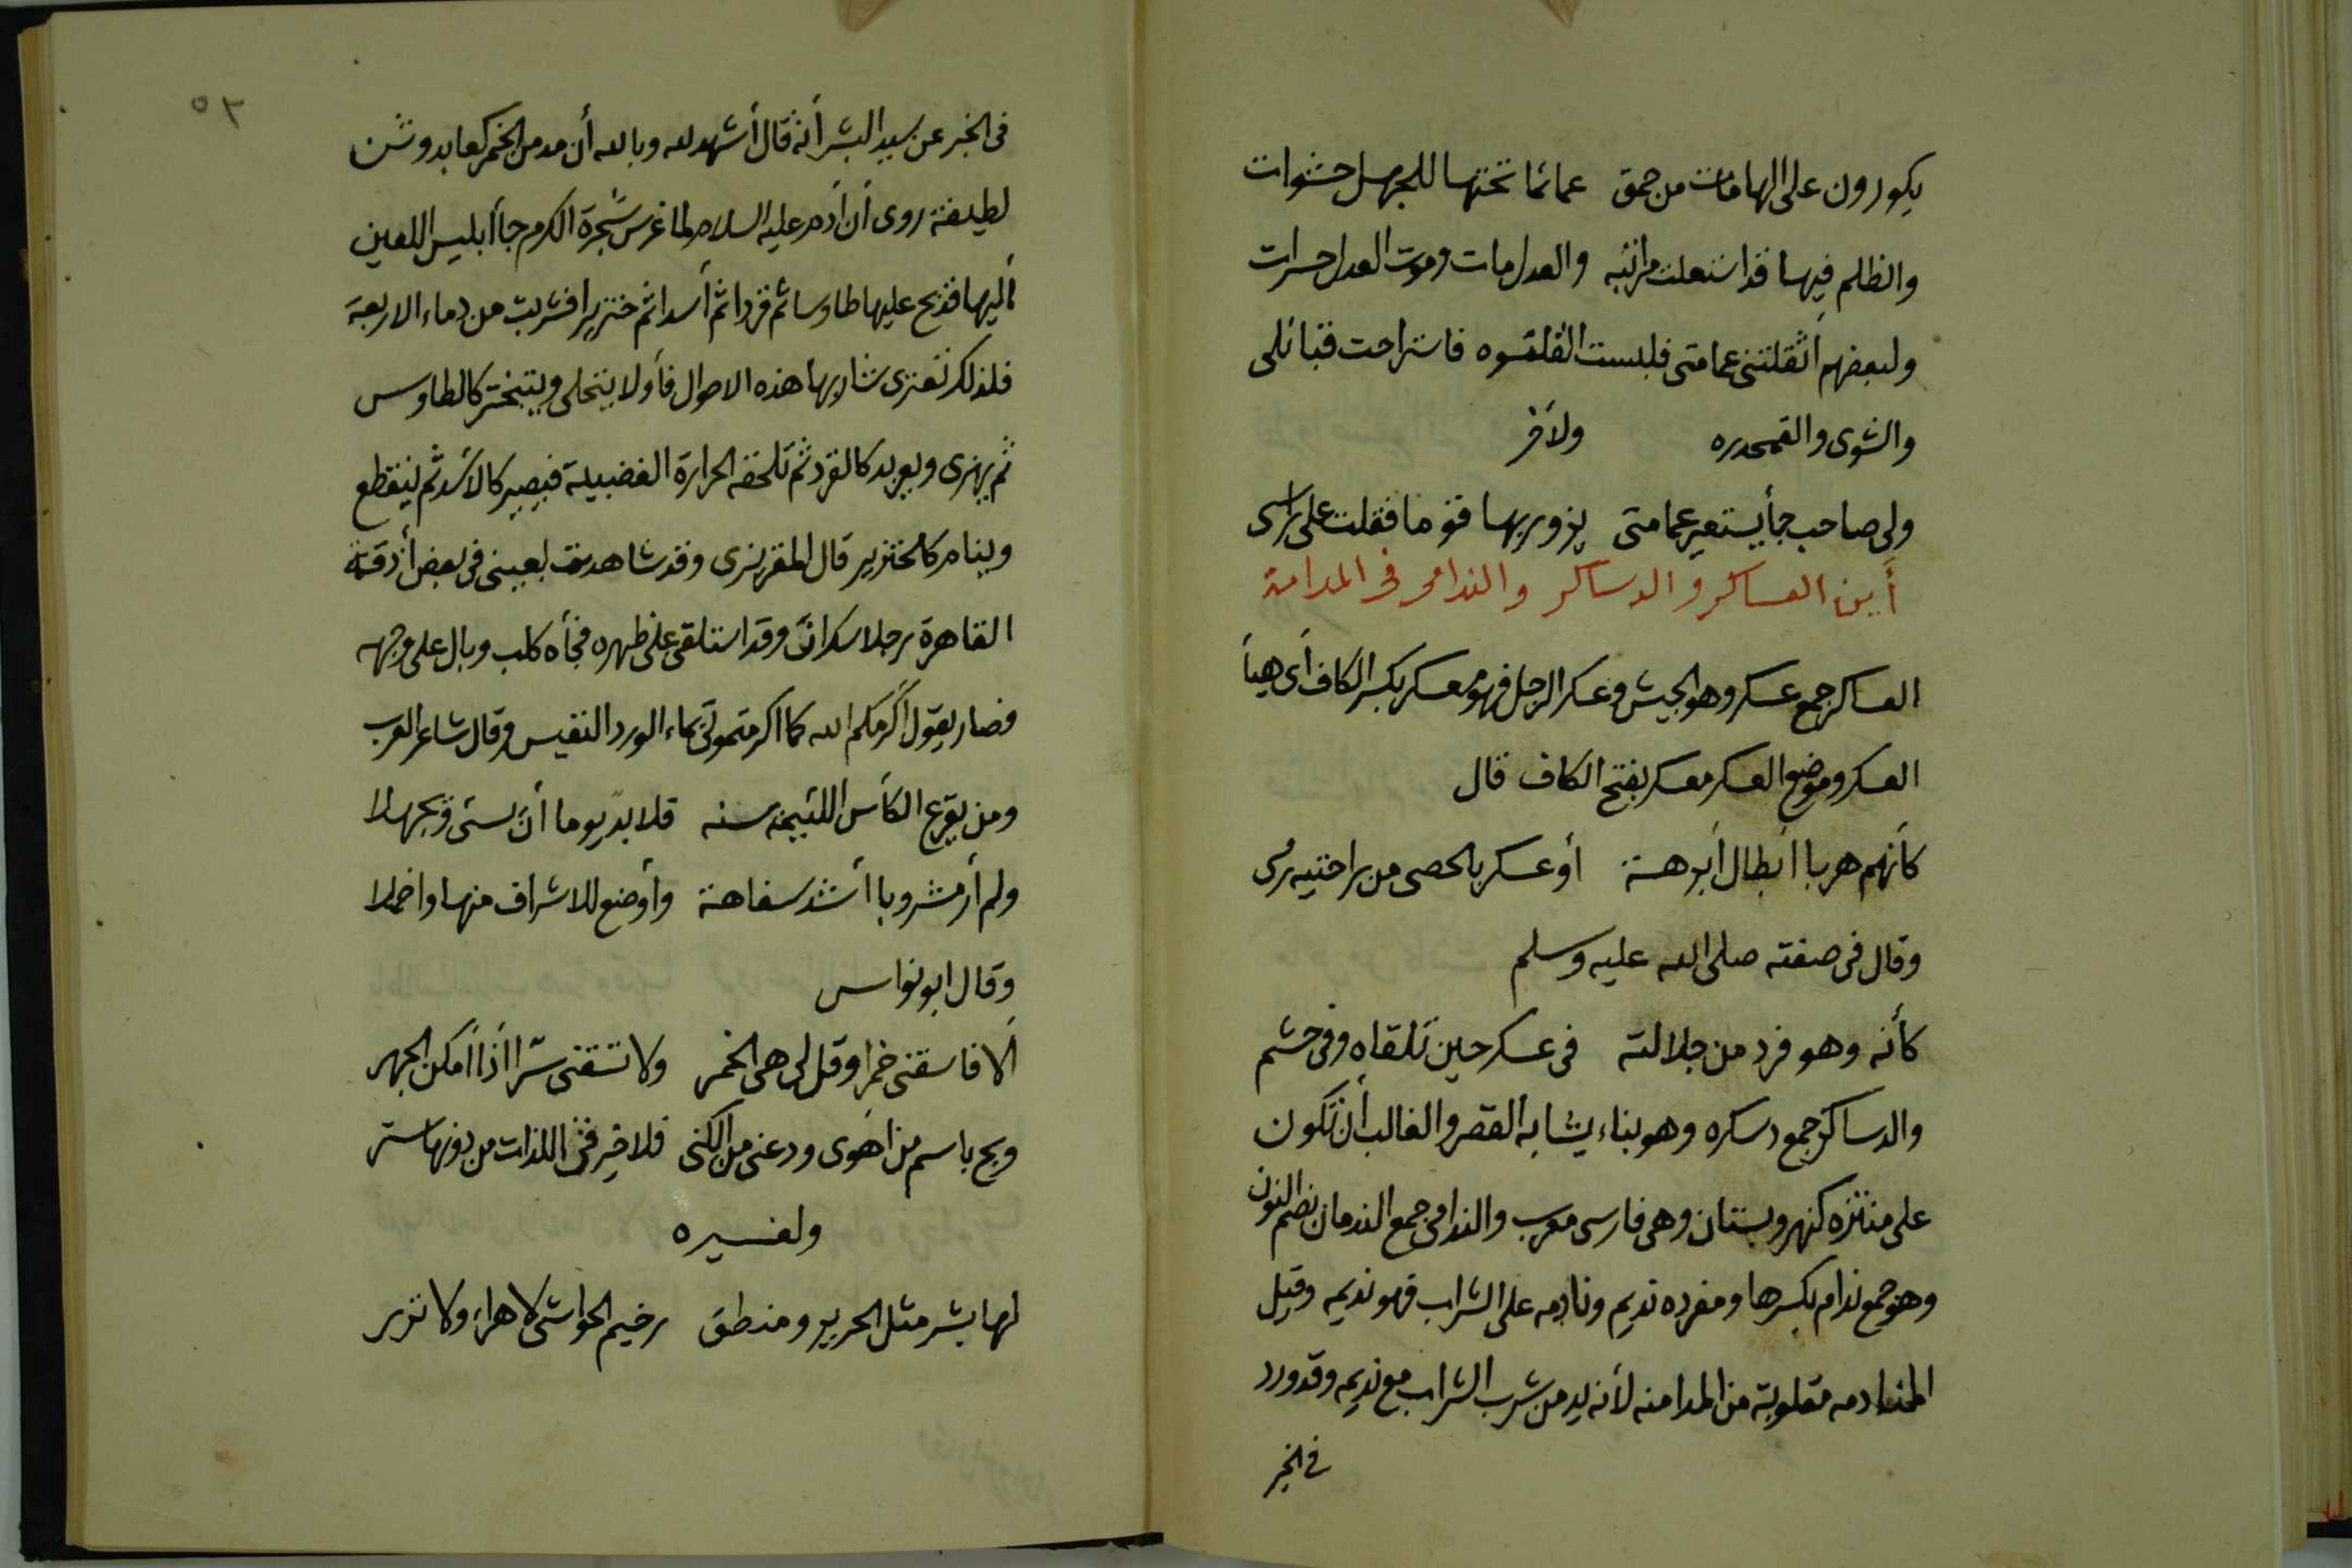 يكورون على الهامات من حمق عمائما تحتها للجهل حشوات
والظلم فيها قد استعلت مراتبه والعدل مات وموت العدل حسرات
ولبعضهم أثقلتني عمامتي فلبست القلقسوه فاستراحت قبائلى
والشوى والقمحدره ولآخر
ولى صاحب جأ يستعير عمامتى يزور بها قوما فقلت على راسى
أين العساكر و الدساكر والندامى فى المدامة
العساكر جمع عسكر وهو الجيش وعسكر الرجل فهو معسكر بكسر الكاف أى هيأ
العسكر وموضع العسكر معسكر بفتح الكاف قال
كأنهم هربا أبطال أبرهة أو عسكر بالحصى من راحتيه رمى
وقال فى صفته صلى الله عليه وسلم
كأنه وهو فرد من جلالته فى عسكر حين تلقاه وفى حشم
والدساكر جمع دسكره وهو بناء يشابه القصر والغالب أن تكون
على منتزه كنهر وبستان وهى فارسى معرب والندامى جمع الندمان بضم النون
وهو جمع ندام بكسرها ومفرده نديم ونادمه على الشراب فهو نديمه وقيل
المنادمه مقلوبة من المدامنه لأنه يدمن شرب الشراب مع نديمه وقد ورد
فى الخبر
٥٣
فى الخبر عن سيد البشر أنه قال أشهد لله وبالله أن مدمن الخمر كعابد وثن
لطيفة روى أن أدم عليه السلام لما غرس شجرة الكرم جأ أبليس اللعين
أليها فذبح عليها طاوسا ثم قردا ثم أسدا ثم خنزيرا فشربت من دماء الاربعة
فلذلك تعترى شاربها هذه الاحوال فأولا يتحلى ويتبختر كالطاوس
ثم يهزى ويعربد كالقرد ثم تلحقه الحرارة الغضبيه فيصير كالاسد ثم ينقطع
وينام كالخنزير قال المقريزى وقد شاهدت بعينى فى بعض أزقة
القاهرة رجلا سكرانا وقد استلقى على ظهره فجأه كلب وبال على وجهه
فصار يقول أكرمكم الله كما اكرمتمونى بماء الورد النفيس وقال شاعر العرب
ومن يقرع الكأس اللئيمة سنه فلا بد يوما أن يسئ ويجهلا
ولم أر مشروبا أشد سفاهة وأوضع للاشراف منها واخملا
وقال ابو نواس
ألا فاسقنى خمرا وقل لى هى الخمر ولا تسقنى سرا اذا أمكن الجهر
وبح باسم من اهوى ودعنى من الكنى فلا خير فى اللذات من دونها ستر
ولغيره
لها بشر مثل الحرير ومنطق رخيم الحواشى لا هراء ولا نزر